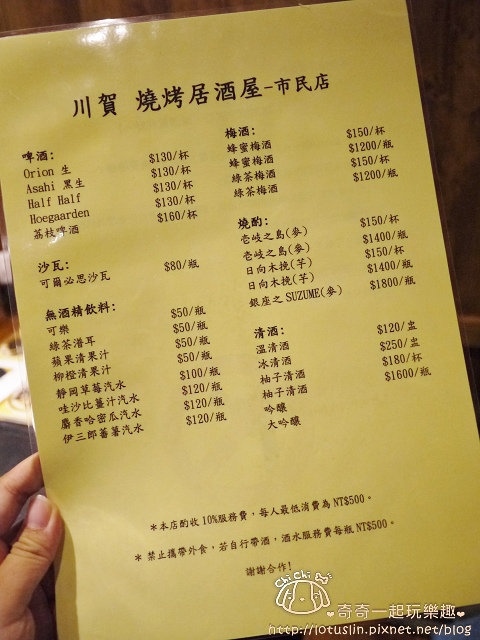 川賀 燒烤居酒屋-市民店
啤酒:
Orion 生 $130/杯
Asahi 黑生 $130/杯
Half Half $130/杯
Hoegaarden $130/杯
荔枝啤酒 $160/杯
沙瓦:
可爾必思沙瓦 $80/瓶
無酒精飲料:
可樂 $50/瓶
綠茶潽耳 $50/瓶
蘋果清果汁 $50/瓶
柳橙清果汁 $50/瓶
靜岡草莓汽水 $100/瓶
哇沙比薑汁汽水 $120/瓶
麝香哈密瓜汽水 $120/瓶
伊三郎蕃薯汽水 $120/瓶
梅酒:
蜂蜜梅酒 $150/杯
蜂蜜梅酒 $1200/瓶
綠茶梅酒 $150/杯
綠茶梅酒 $1200/瓶
燒酌:
壱岐之島(麥) $150/杯
壱岐之島(麥) $1400/瓶
日向木挽(芋) $150/杯
日向木挽(芋) $1400/瓶
銀座之 SUZUME(麥) $1800/瓶
清酒:
溫清酒 $120/盅
冰清酒 $250/盅
柚子清酒 $180/杯
柚子清酒 $1600/瓶
吟釀
大吟釀
*本店酌收 10%服務費,每人最低消費為 NT$500。
*禁止攜帶外食,若自行帶酒,酒水服務費每瓶 NT$500。
謝謝合作!
Chi Chi
奇奇一起玩樂趣
http://lotuslin.pixnet.net/blog